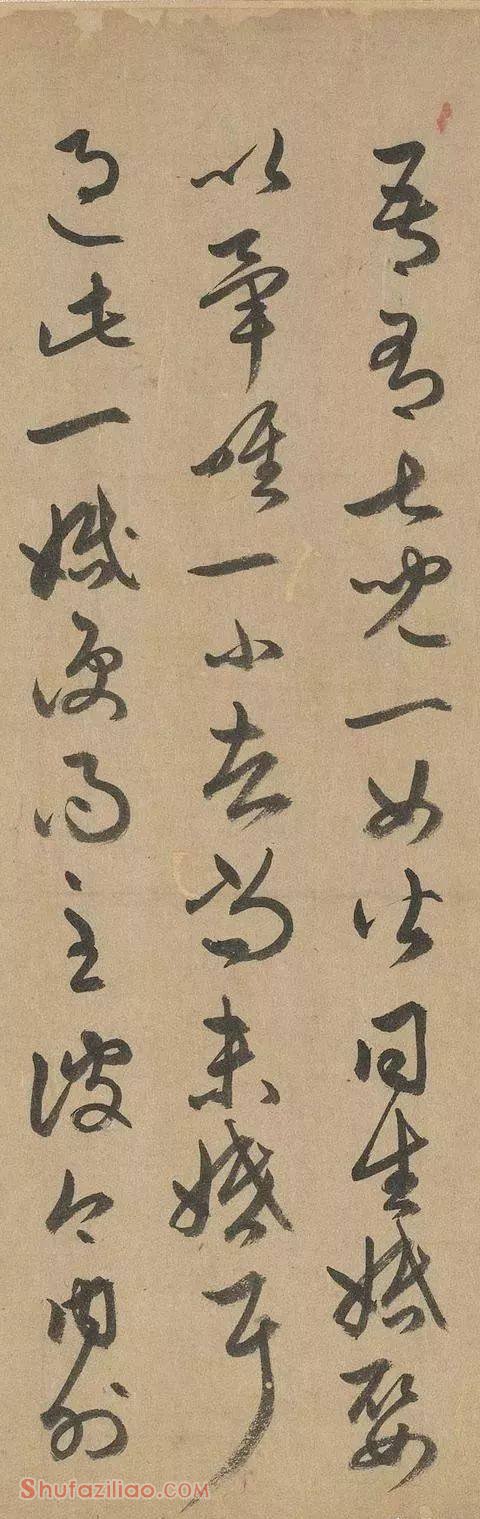 吾有七兒一女皆同生婚娶
以畢唯一小者尚未婚耳
過此一婚便得至彼今內外
Shufaziliao.COM